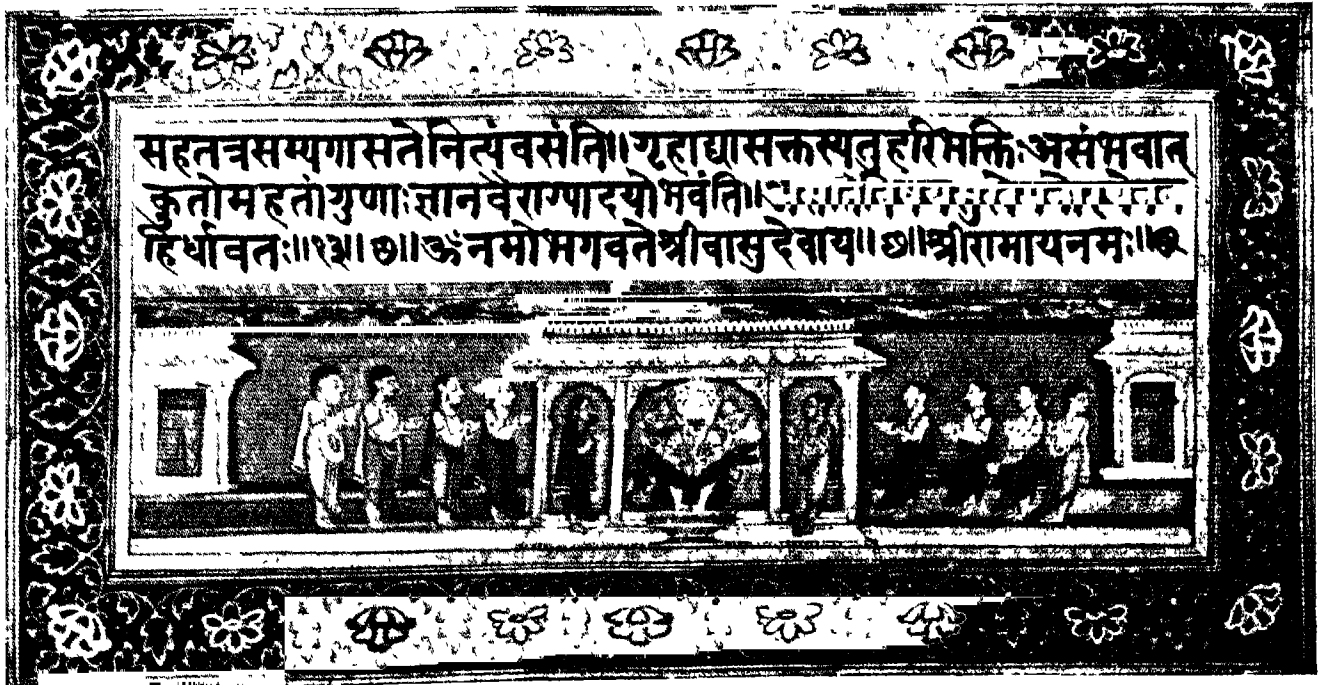 सहतत्रसम्यगासतेनित्यंवसंति॥गृहाद्यासक्तस्यतुहरिभक्तिःअसंभवात्
कुतोमहतांगुणाःज्ञानवैराग्पादयोभवंति॥
हिर्धावतः॥१३॥छ॥ॐनमोभगवतेश्रीवासुदेवाय॥छ॥श्रीरामायनमः॥